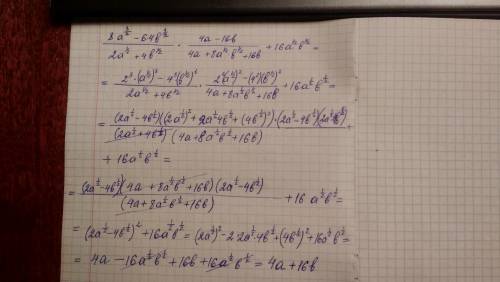 (8a^{3/2} - 64b^{3/2})/(2a^{1/2} + 4b^{1/2}) · (4a - 16b)/(4a + 8a^{1/2}b^{1/2} + 16b) + 16a^{1/2}b^{1/2} =
= · + 16a^{1/2}b^{1/2} =
= ((2a^{1/2} - 4b^{1/2})((2a^{1/2})^2 + 2a^{1/2}4b^{1/2} + (4b^{1/2})^2) · (2a^{1/2} - 4b^{1/2})/((2a^{1/2} + 4b^{1/2})(4a + 8a^{1/2}b^{1/2} + 16b)) +
+ 16a^{1/2}b^{1/2} =
= (2a^{1/2} - 4b^{1/2})(4a + 8a^{1/2}b^{1/2} + 16b)(2a^{1/2} - 4b^{1/2})/(4a + 8a^{1/2}b^{1/2} + 16b) + 16a^{1/2}b^{1/2} =
= (2a^{1/2} - 4b^{1/2})^2 + 16a^{1/2}b^{1/2} = (2a^{1/2})^2 - 2·2a^{1/2}·4b^{1/2} + (4b^{1/2})^2 + 16a^{1/2}b^{1/2} =
= 4a - 16a^{1/2}b^{1/2} + 16b + 16a^{1/2}b^{1/2} = 4a + 16b